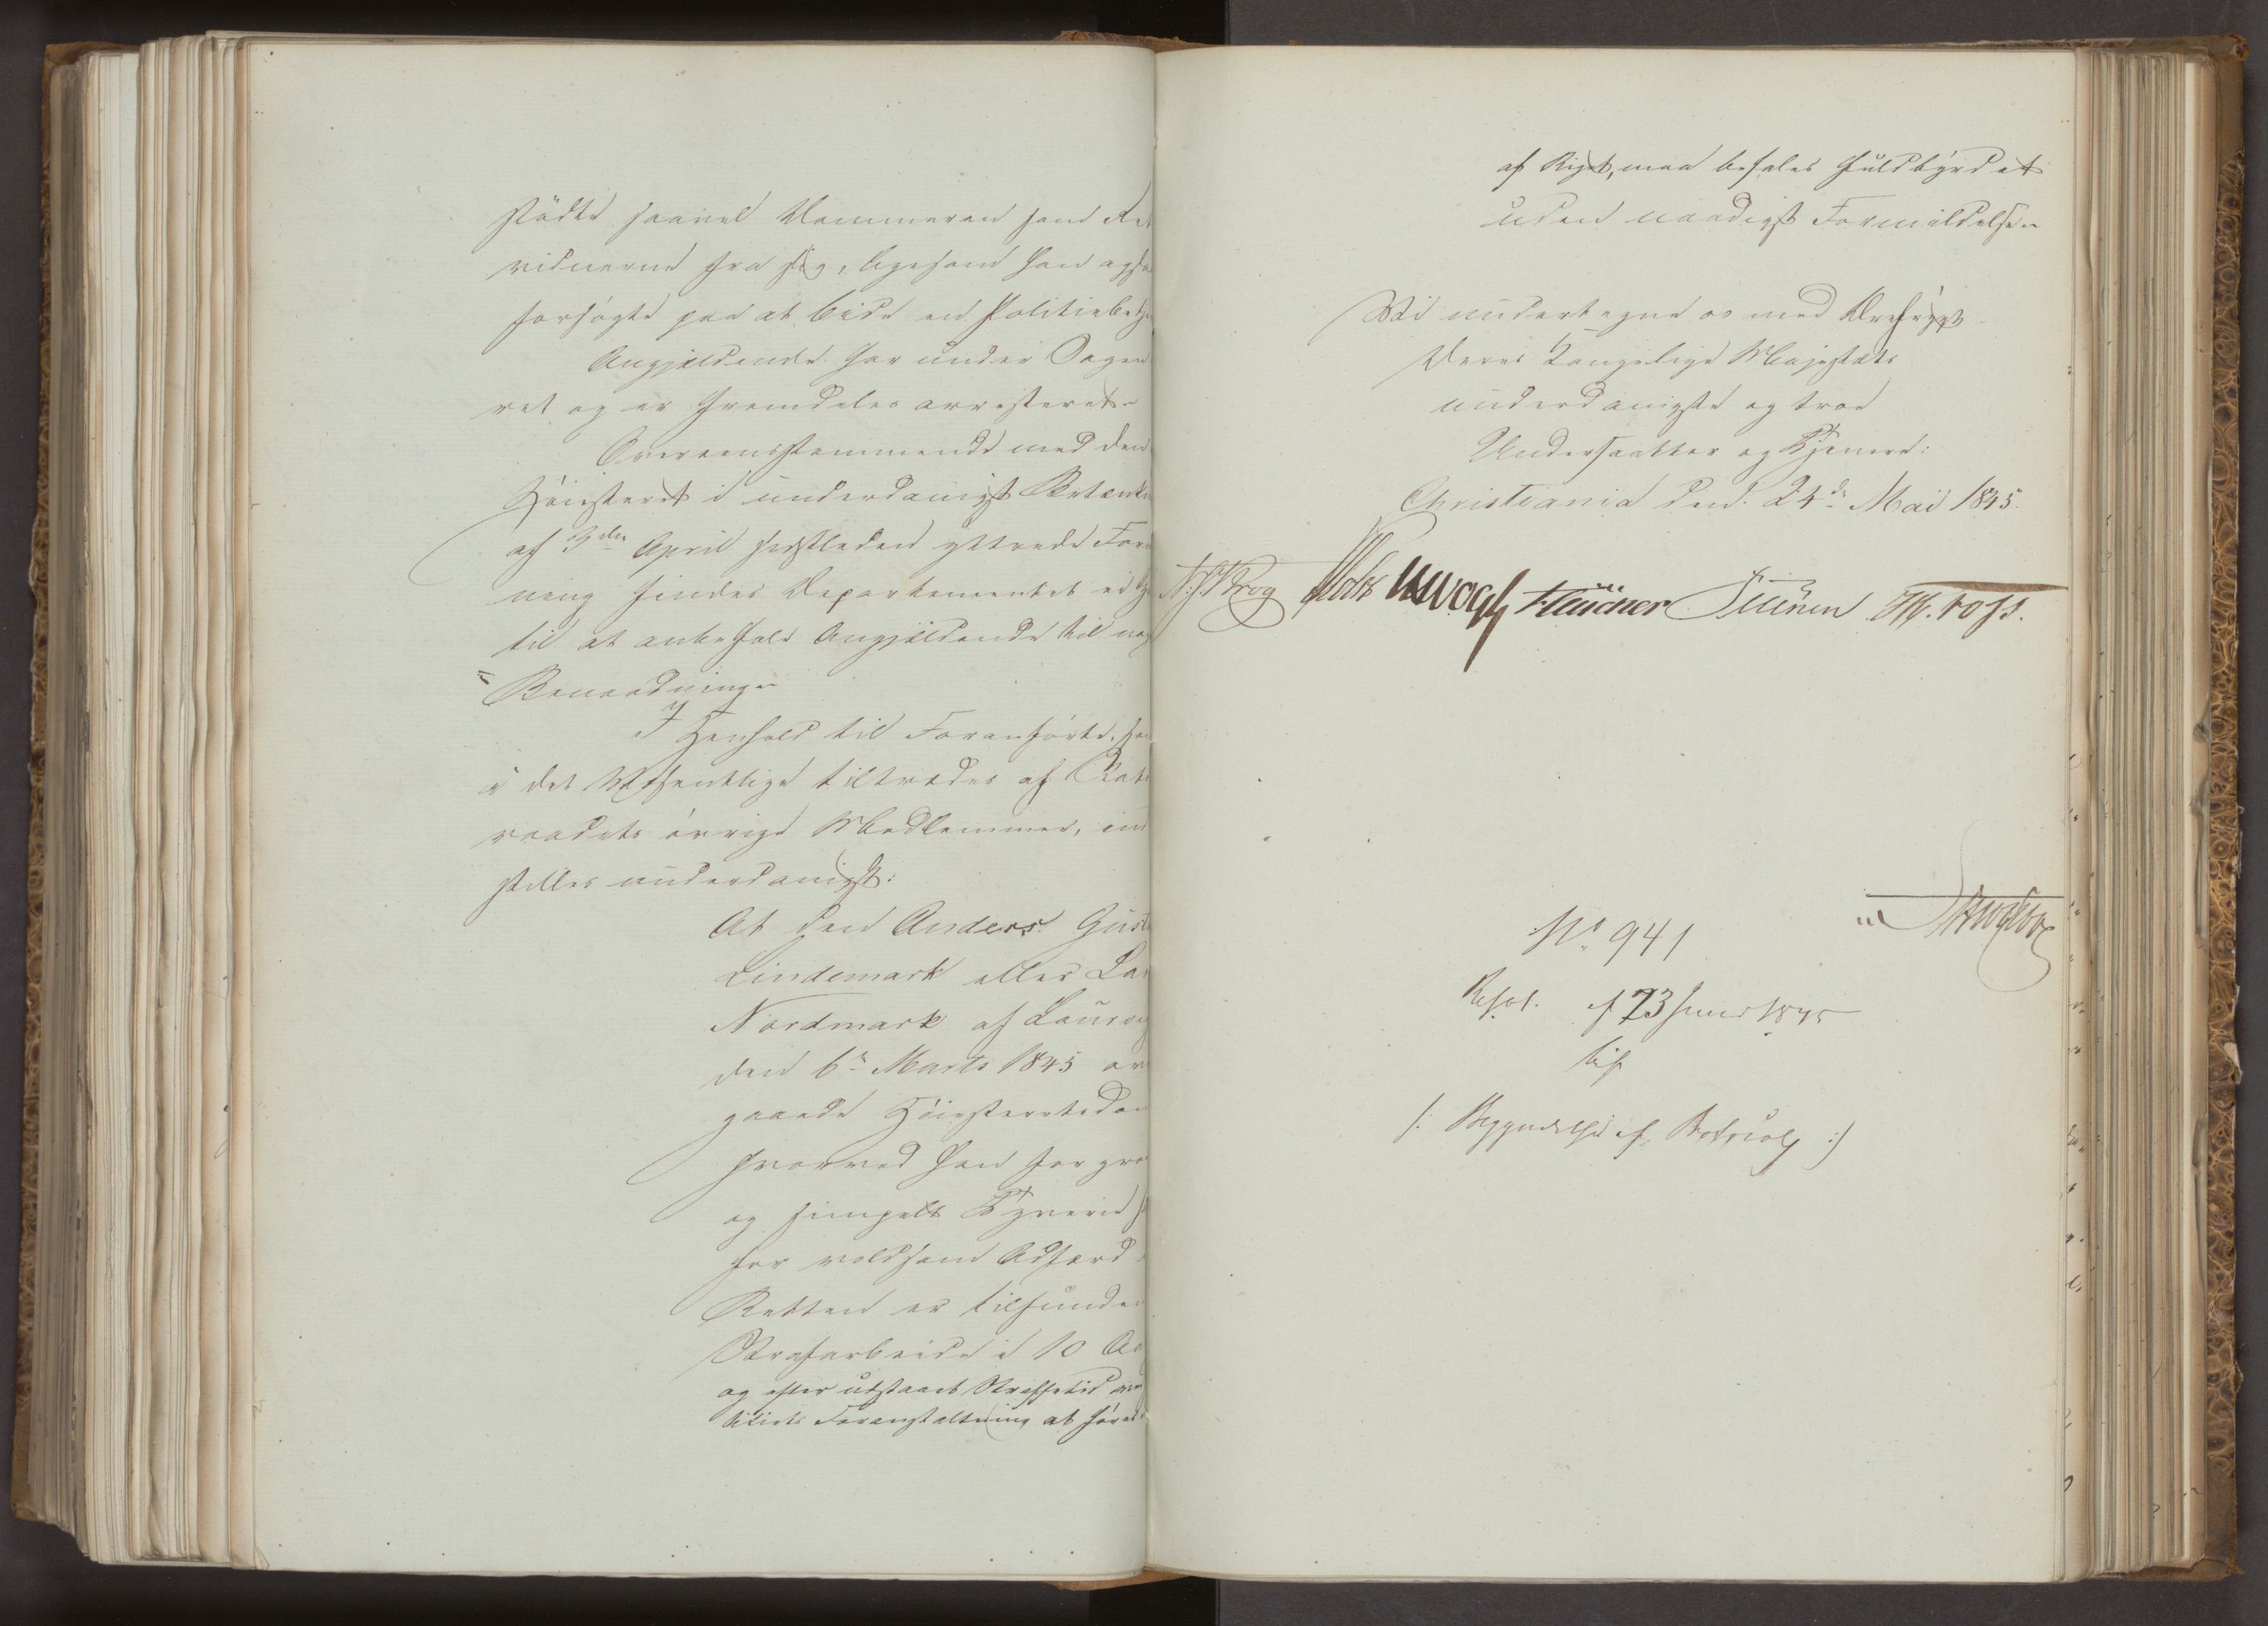 stödte saavel Dommeren som Ret
vidnerne fra sig, ligesom han ogsaa
forsøgte paa at bide en Politiebetje
Angjældende har under Sagen
ret og er fremdeles arresteret.
Overeensstemmende med den
Høiesteret i underdanigst Betænkn
af 3den April sidstleden yttrede For
ning finder Departementet ei
til at anbefale Angjældende til nog
Benaadning.
I Henhold til Foranførte, som
i det Væsentlige tiltrædes af Stats
raadets øvrige Medlemmer, ind
stilles underdanigst:
At den Anders Gust
Lindemark eller La
Nordmark af Laurvig
den 6te Marts 1845 over
gaaede Høiesteretsdom
hvorved han for gro
og simpelt Tyverie
for voldsom Adfærd
Retten er tilfunden
Strafarbeide i 10 Aa
og efter udstaaet Straffetid ved
litiets Foranstaltning at føres
af Riget, maa befales fuldbyrdet
uden naadigst Formildelse.
Vi undertegne os med Ærefrygt
Deres Kongelige Majestæts
underdanigste og troe
Undersaatter og Tjenere:
Christiania den 24de Mai 1845.
Krog Vogt
No 941
Resol. af 23 Juni 1845
lif
/: Begyndelse af Protocol :/